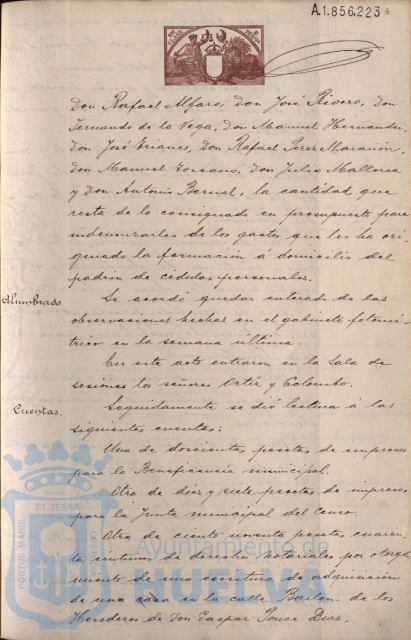 A.1.856.223*
Don Rafael Alfaro, Don José Rivero, Don
Fernando de la Vega, Don Manuel Hernandez,
Don José Arianes, Don Rafael Perez Marañon,
Don Manuel Toscano, Don Julio Mallorca
y Don Antonio Bernal, la cantidad que
resta de lo consignado en presupuesto para
indemnizarles de los gastos que les ha ori-
ginado la formacion á domicilio del
padrón de cédulas personales.
Alumbrado
Se acordó quedar enterado de las
observaciones hechas en el gabinete fotomé-
trico en la semana última.
En este acto entraron en la Sala de
sesiones los señores Ortiz y Colombo.
Cuentas.
Seguidamente se dió lectura á las
siguientes cuentas:
Una de doscientas pesetas de impresos
para la Beneficencia municipal.
Otra de diez y siete pesetas de impresos
para la Junta municipal del Censo.
Otra de ciento noventa pesetas cuaren-
ta centimos de derechos notariales por otorga-
miento de una escritura de adquisicion
de una casa en la calle Bailén de los
Herederos de Don Gaspar Ponce Dias,
PORTUS MARIS
ET TERRAE
CUSTODIA
Ayuntamiento de
HUELVA